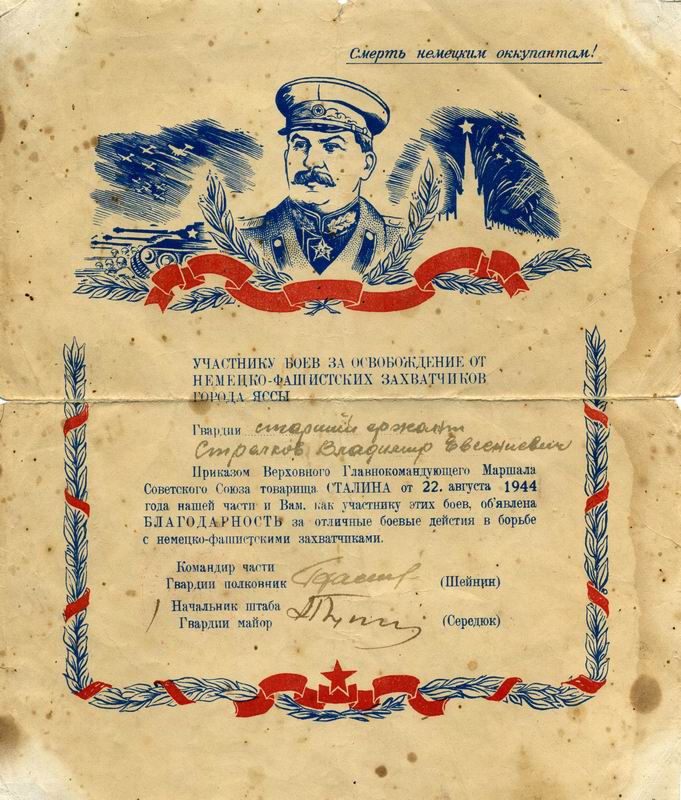 Смерть немецким оккупантам!
УЧАСТНИКУ БОЕВ ЗА ОСВОБОЖДЕНИЕ ОТ
НЕМЕЦКО-ФАШИСТСКИХ ЗАХВАТЧИКОВ
ГОРОДА ЯССЫ
Гвардии старший сержант
Стрелков Владимир Евгениевич
Приказом Верховного Главнокомандующего Маршала
Советского Союза товарища СТАЛИНА от 22. августа 1944
года нашей части и Вам, как участнику этих боев, об'явлена
БЛАГОДАРНОСТЬ за отличные боевые дейстия в борьбе
с немецко-фашистскими захватчиками.
Командир части
Гвардии полковник (Шейнин)
Начальник штаба
Гвардии майор (Середюк)